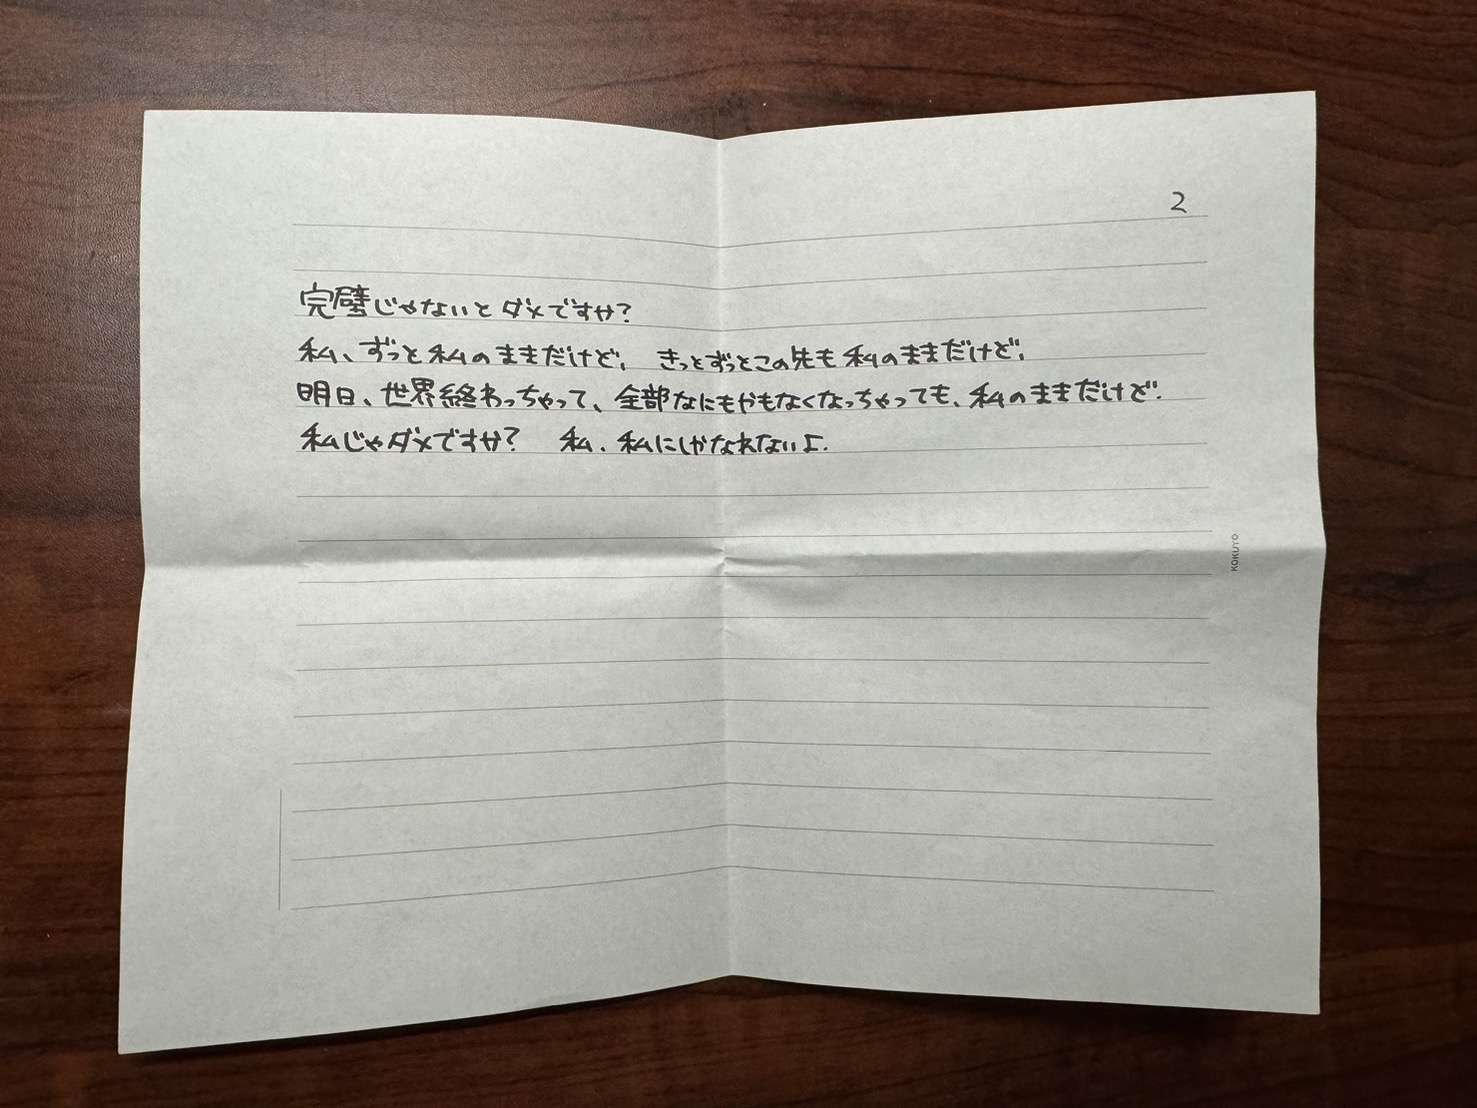 2
完璧じゃないとダメですか?
私、ずっと私のままだけど、 きっとずっとこの先も私のままだけど、
明日、世界終わっちゃって、全部なにもかもなくなっちゃっても、私のままだけど.
私じゃダメですか? 私、私にしかなれないよ.
KOKUYO